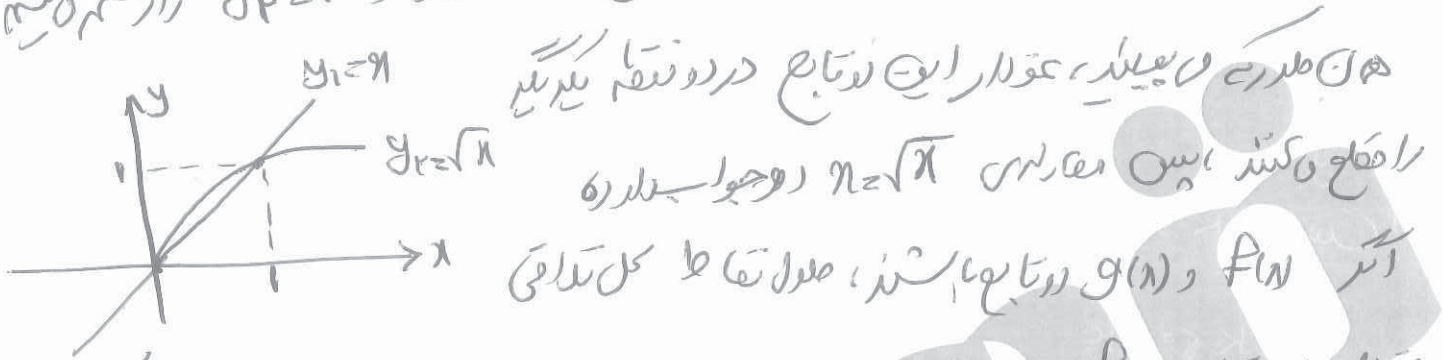 همان طور که می بینید، نمودار این دو تابع در دو نقطه یکدیگر
را قطع می کنند، پس معادله ی x=√x دو جواب دارد
اگر f(x) و g(x) دو تابع باشند، طول نقاط محل تلاقی
y₁=x
y
y₂=√x
۱
x
۱